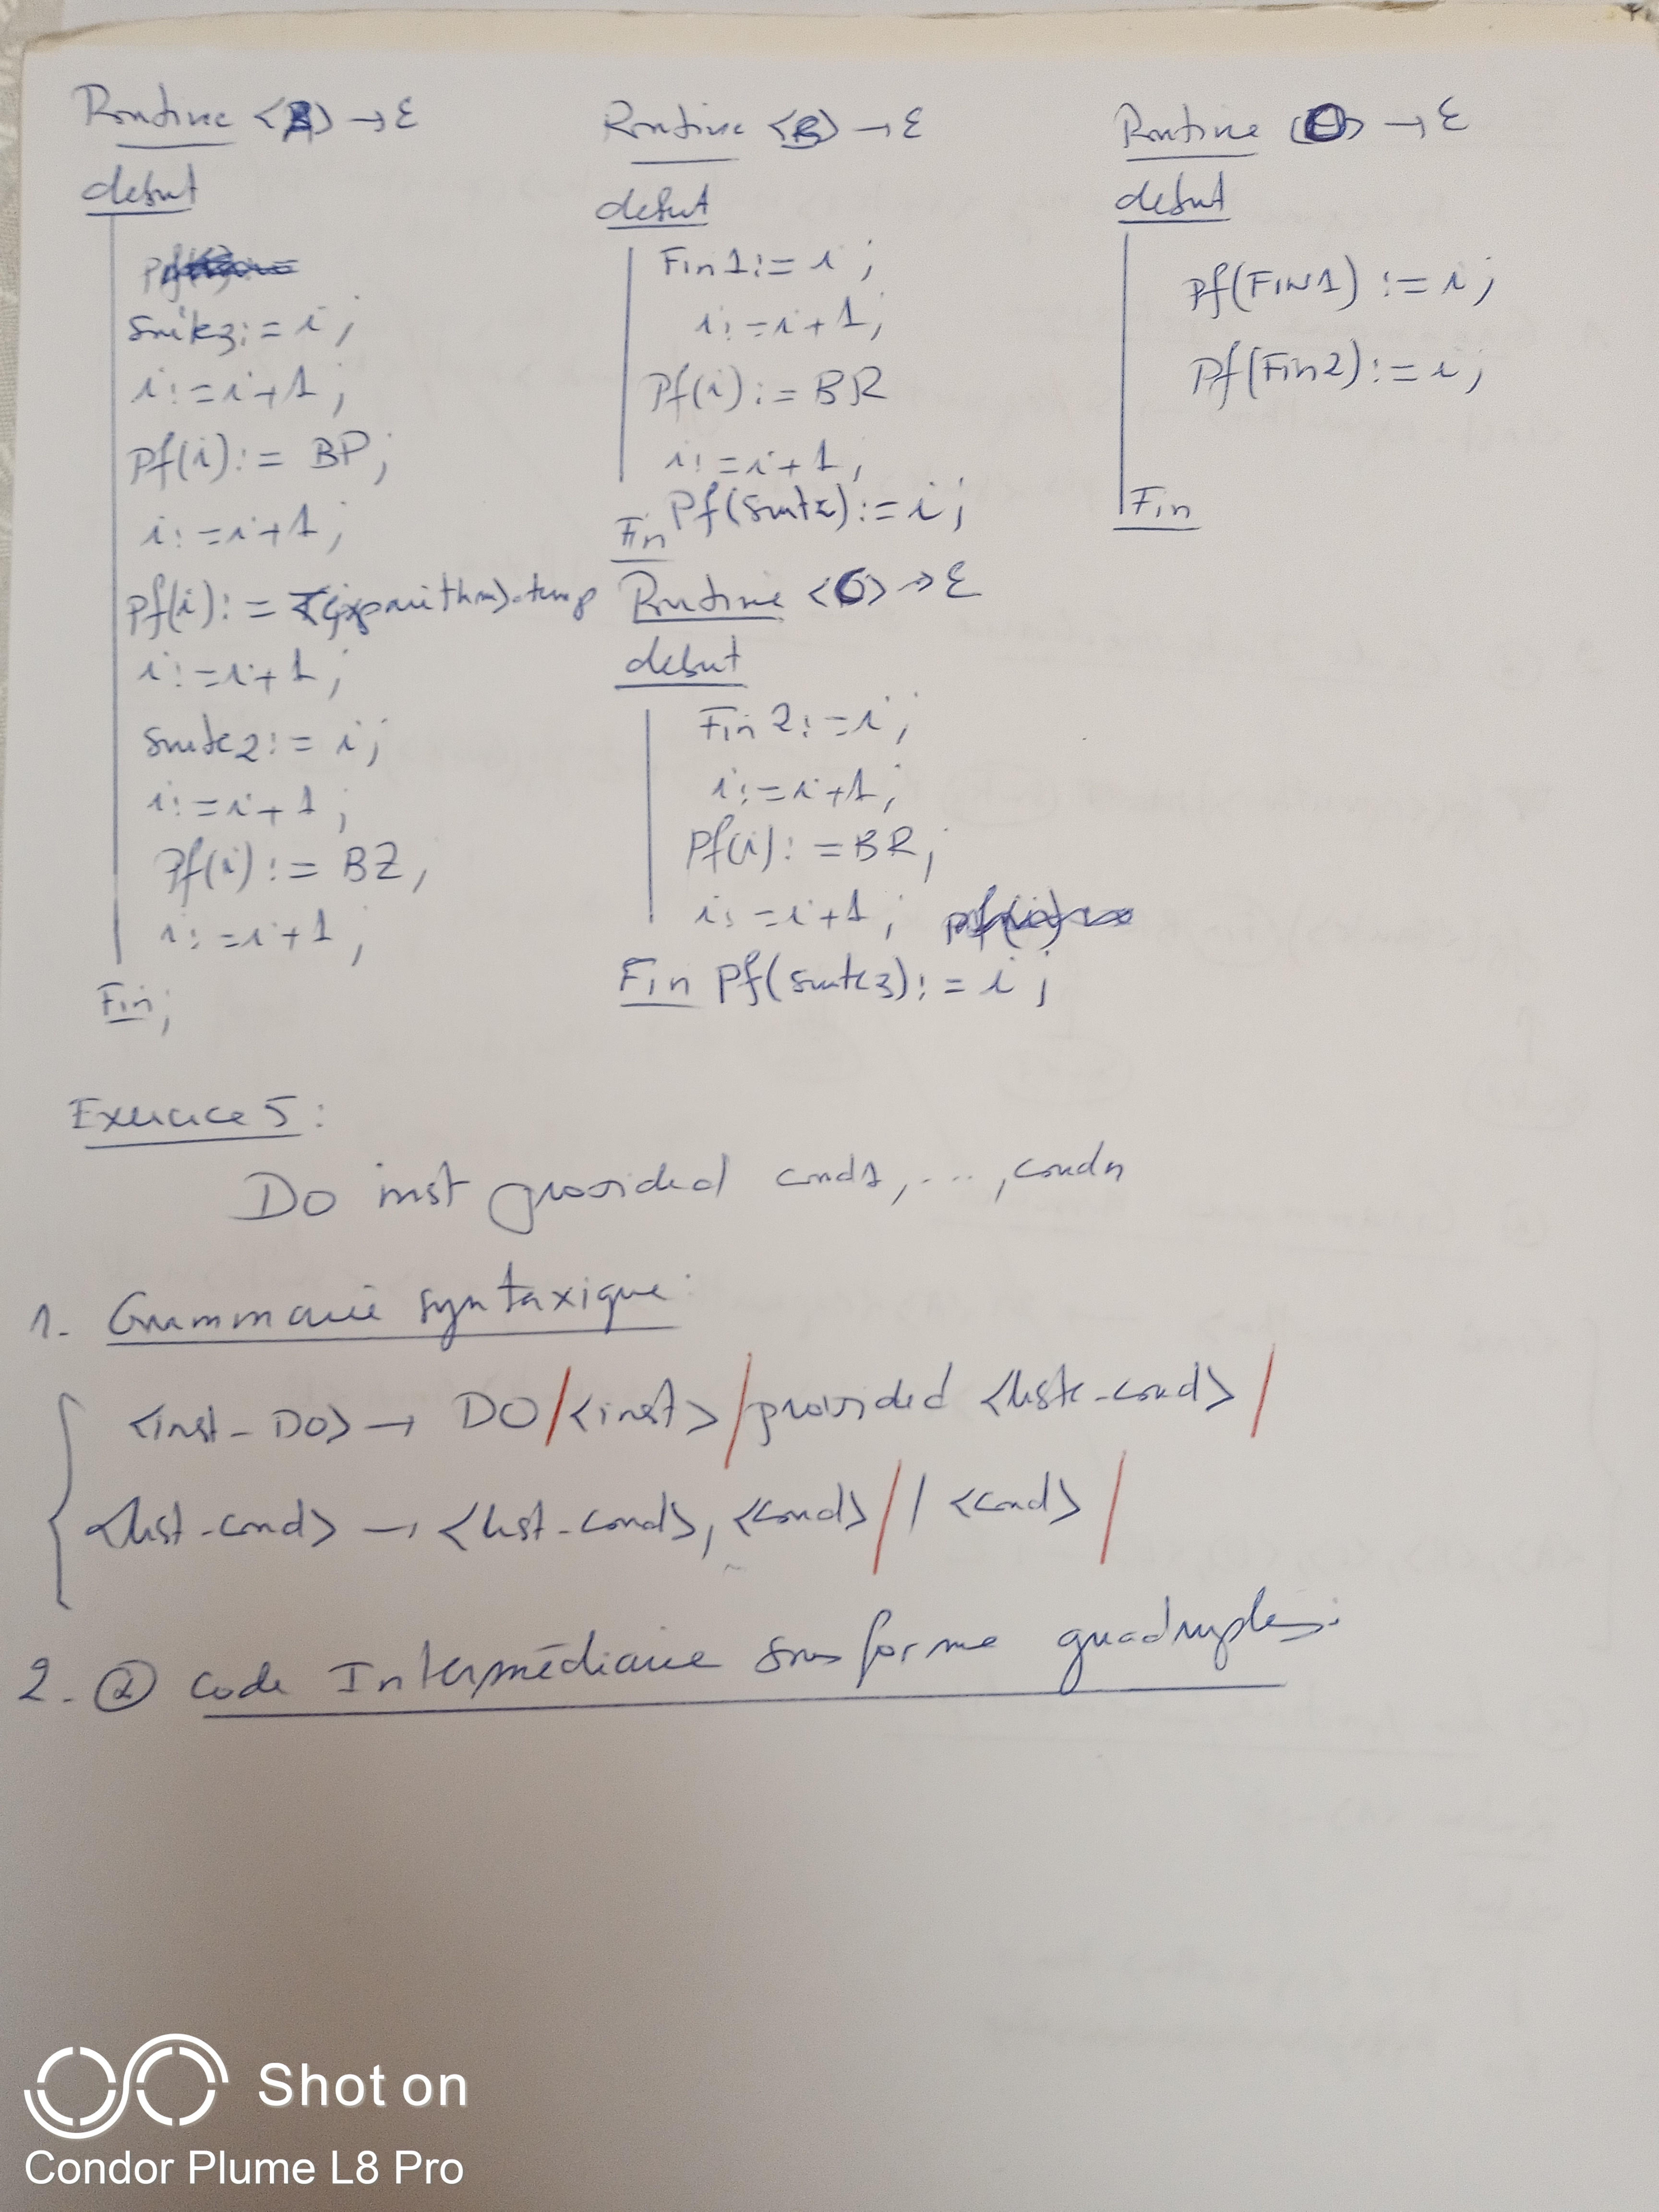 Routine <A> → ε
debut
suite3 := i ;
i := i+1 ;
Pf(i) := BP ;
i := i+1 ;
Pf(i) := <exparithm>.temp
i := i+1 ;
suite2 := i ;
i := i+1 ;
Pf(i) := BZ ;
i := i+1 ;
Fin ;
Routine <B> → ε
debut
Fin1 := i ;
i := i+1 ;
Pf(i) := BR
i := i+1 ;
Fin Pf(suite2) := i ;
Routine <C> → ε
debut
Fin2 := i ;
i := i+1 ;
Pf(i) := BR ;
i := i+1 ;
Fin Pf(suite3) := i ;
Routine <D> → ε
debut
Pf(FIN1) := i ;
Pf(Fin2) := i ;
Fin
Exercice 5 :
DO inst provided cond1, ..., condn
1. Grammaire syntaxique :
<inst_DO> → DO / <inst> / provided <liste_cond> /
<list_cond> → <list_cond>, <cond> / | <cond> /
2. ② Code Intermédiaire sous forme quadruplets :
Shot on
Condor Plume L8 Pro